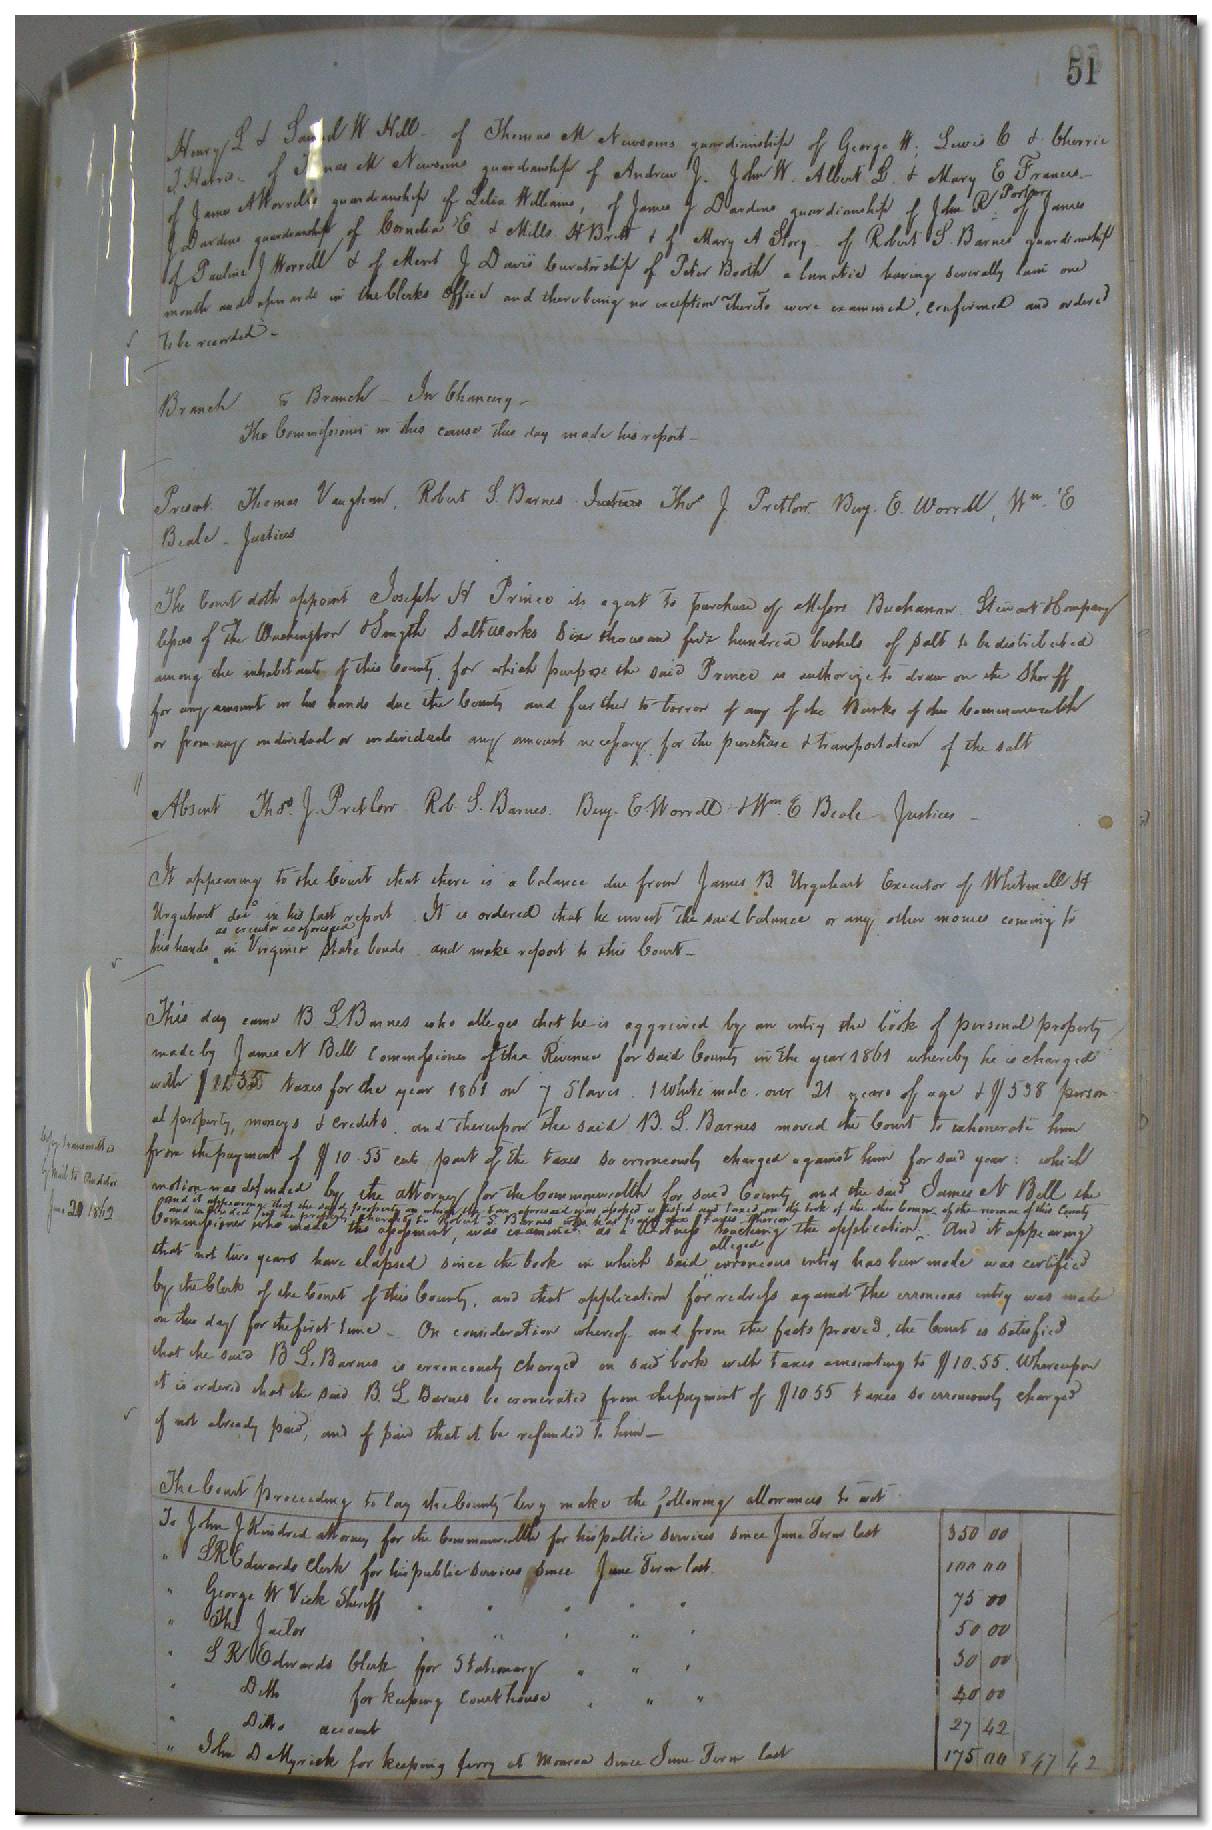 51
Henry L & Samuel W Hill - of Thomas M Newsoms guardianship of George W, Lewis C & Cherrie
J. Harris - of Thomas M Newsoms guardianship of Andrew J. John W. Albert G. & Mary E Frances -
of James A Worrells guardianship of Lelia Williams, of James J Dardens guardianship of John R Porter, of James
J Dardens guardianship of Cornelia E & Mills H Britt & of Mary A Story - of Robert S. Barnes guardianship
of Pauline J Worrell & of Merit J Davis Curatorship of Peter Booth a lunatic having severally lain one
month and upwards in the Clerks office and there being no exception thereto were examined, confirmed and ordered
to be recorded -
Branch & Branch - In Chancery -
The Commissioner in this cause this day made his report -
Present. Thomas Vaughan, Robert S. Barnes Justices Thos J. Pretlow Benj. E. Worrell, Wm. E
Beale - Justices
The Court doth appoint Joseph H Prince its agent to purchase of Messrs Buchanan. Stewart & Company
lessees of the Washington & Smyth Saltworks six thousand five hundred bushels of salt to be distributed
among the inhabitants of this County for which purpose the said Prince is authorize to draw on the Sheriff
for any amount in his hands due the County and further to borrow of any of the Banks of this Commonwealth
or from any individual or individuals any amount necessary for the purchase & transportation of the salt
Absent Thos. J. Pretlow Rob. S. Barnes. Benj. E Worrell & Wm. E Beale Justices -
It appearing to the Court that there is a balance due from James B. Urquhart Executor of Whitmell H
Urquhart decd in his last report. It is ordered that he invest the said balance or any other monies coming to
as executor as aforesaid
his hands in Virginia State bonds and make report to this Court -
This day came B L Barnes who alleges that he is aggrieved by an entry the book of personal property
made by James N Bell Commissioner of the Revenue for said County in the year 1861 whereby he is charged
with $ taxes for the year 1861 on 7 Slaves. 1 White male over 21 years of age & $538 person-
al property, moneys & credits. and thereupon the said B. L. Barnes moved the Court to exhonerate him
from the payment of $10.55 cts part of the taxes so erroneously charged against him for said year: which
motion was defended by the attorney for the Commonwealth for said County and the said James N Bell the
and it appearing that the said property on which the tax aforesaid was assessed is listed and taxed on the book of the other Commr. of the revenue of this County
and in the property charged to Robert S. Barnes who has paid taxes thereon
Commissioner who made the assessment, was examined as a witness touching the application. And it appearing
alleged
that not two years have elapsed since the book in which said erroneous entry has been made was certified
by the Clerk of the Court of this County, and that application for redress against the erroneous entry was made
on this day for the first time - On consideration whereof and from the facts proved, the Court is satisfied
that the said B L. Barnes is erroneously charged on said book with taxes amounting to $10.55. Whereupon
it is ordered that the said B. L Barnes be exonerated from the payment of $10.55 taxes so erroneously charged
if not already paid, and if paid that it be refunded to him -
Copy transmitted
by Mail to Auditor
June 20 1862
The Court proceeding to lay the County levy make the following allowances to wit
To John J Kindred attorney for the Commonwealth for his public services since June Term last 350 00
" L R Edwards Clerk for his public services since June Term last. 100 00
" George W Vick Sheriff " " " " " 75 00
" The Jailor " " " " " 50 00
" L R Edwards Clerk for Stationary " " " 30 00
" Ditto for keeping Courthouse " " " 40 00
" Ditto account 27 42
" John D Myrick for keeping ferry at Monroe since June Term last 175 00 847 42